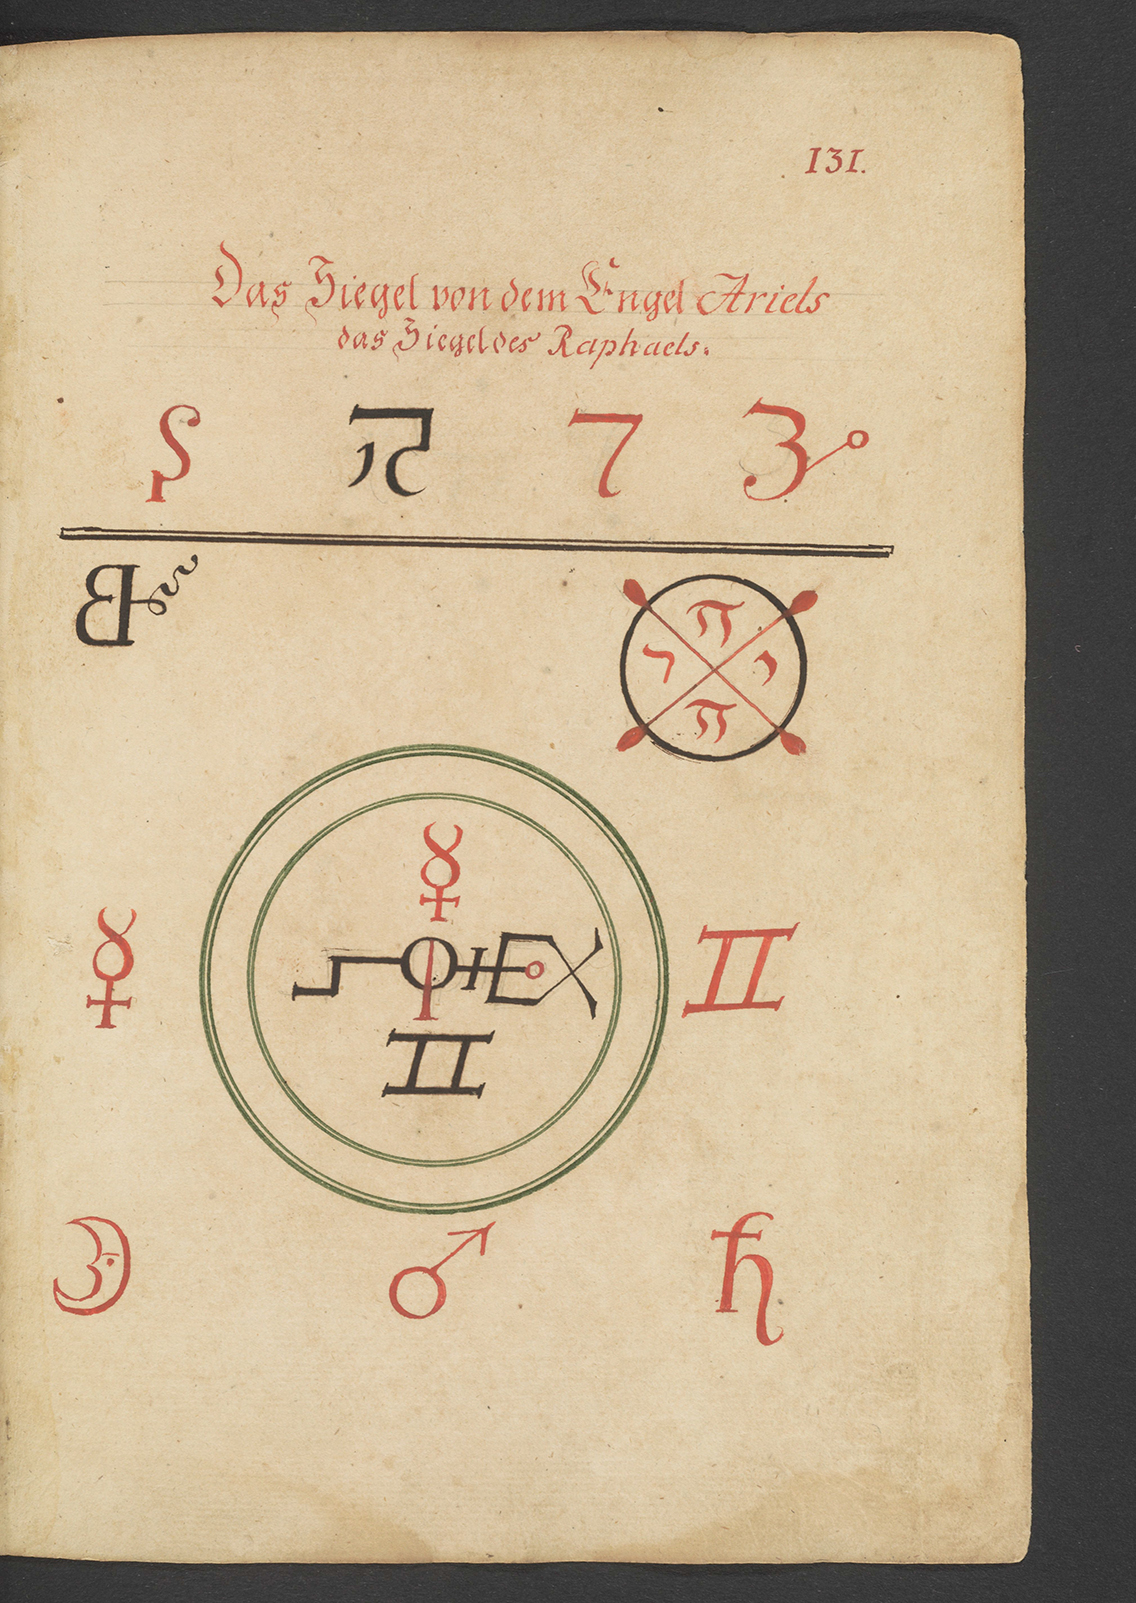 131.
Das Siegel von dem Engel Ariels
das Siegel des Raphaels.
☿
☿
♊
♊
☽ ♂ ♄